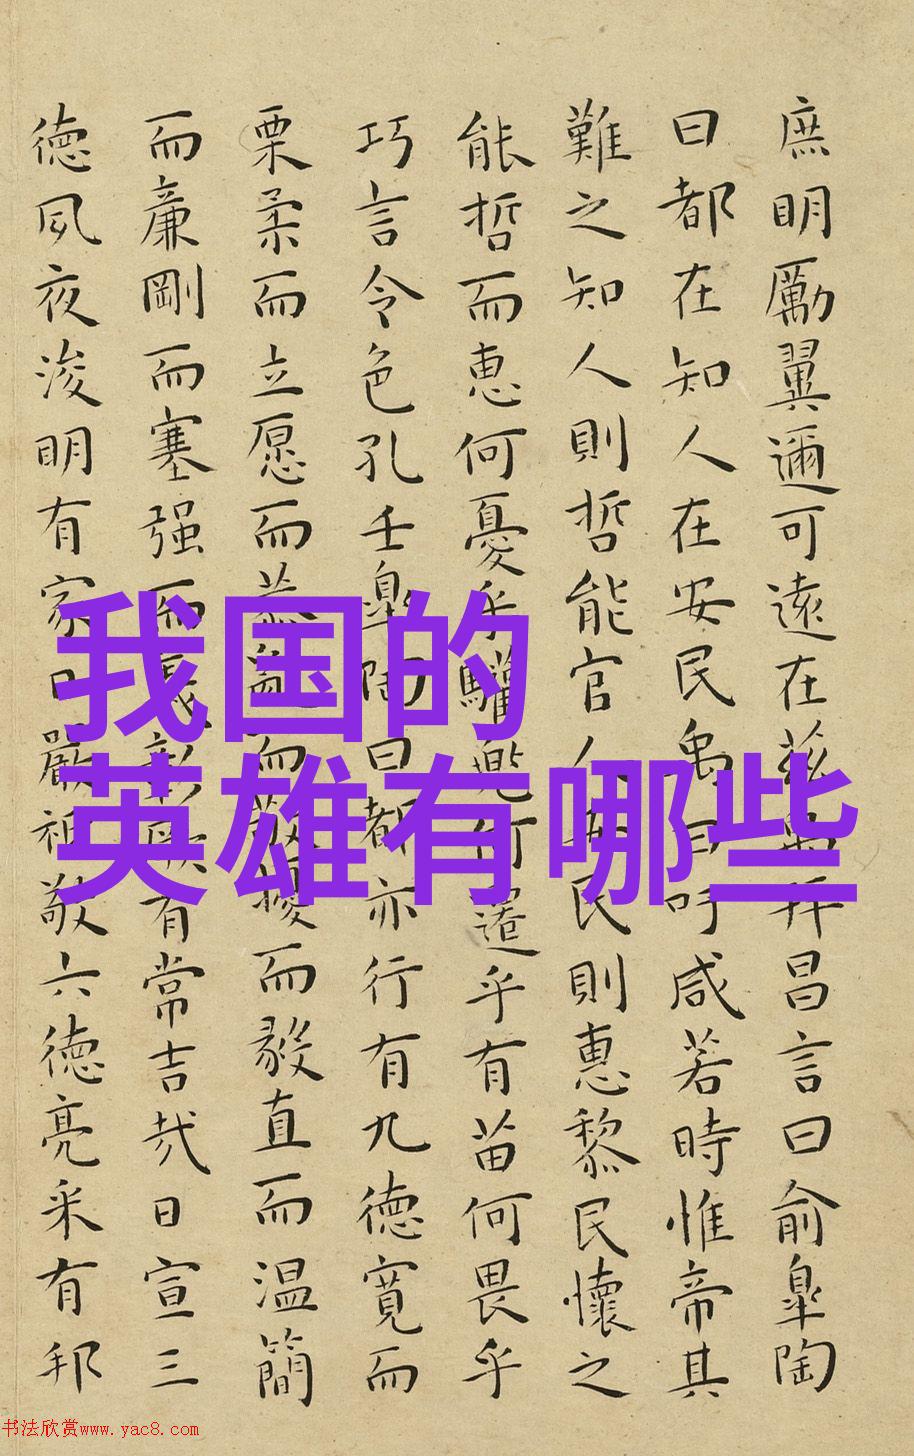 庶明勵翼邇可遠在茲禹拜昌言曰俞皐陶
曰都在知人在安民禹曰吁咸若時惟帝其
難之知人則哲能官人安民則惠黎民懷之
能哲而惠何憂乎驩兜何遷乎有苗何畏乎
巧言令色孔壬皐陶曰都亦行有九德寬而
栗柔而立愿而恭亂而敬擾而毅直而温簡
而廉剛而塞强而義彰厥有常吉哉日宣三
德夙夜浚明有家日嚴祗敬六德亮采有邦
我国的
英雄有哪些
书法欣赏www.yac8.com